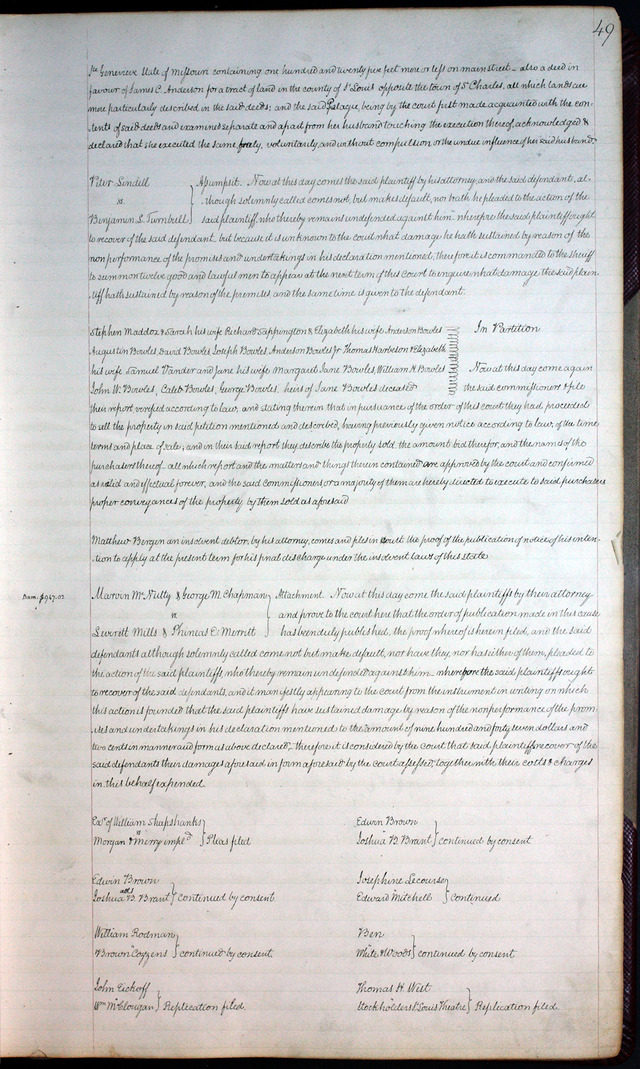 49
Ste Genevieve State of Missouri containing one hundred and twenty five feet more or less on main street – also a deed in
favour of James C. Anderson for a tract of land in the county of St Louis opposite the town of St Charles, all which lands are
more particularly described in the said deeds; and the said Palagie, being by the court first made acquainted with the con-
tents of said deeds and examined separate and apart from her husband touching the execution thereof, acknowledged &
declared that she executed the same freely, voluntarily, and without compulsion or the undue influence of her said husband.
Peter Lindell
vs.
Benjamin L. Turnbull
Assumpsit. Now at this day comes the said plaintiff by his attorney, and the said defendant, al-
though solemnly called comes not, but makes default, nor hath he pleaded to the action of the
said plaintiff, who thereby remains undefended against him. therefore the said plaintiff ought
to recover of the said defendant. but because it is unknown to the court what damage he hath sustained by reason of the
non performance of the promises and undertakings in his declaration mentioned, therefore it is commanded to the sheriff
to summon twelve good and lawful men to appear at the next term of this court to enquire what damage the said plain-
tiff hath sustained by reason of the premises and the same time is given to the defendant.
Stephen Maddox & Sarah his wife Richard Sappington & Elizabeth his wife Anderson Bowles
Augustin Bowles, David Bowles Joseph Bowles Anderson Bowles Jr Thomas Harbeson & Elizabeth
his wife Samuel Vander and June his wife Margaret Jane Bowles, William H. Bowles
John W. Bowles, Caleb Bowles, George Bowles, heirs of Jane Bowles deceased
In Partition
Now at this day come again
the said commissioners & file
their report verified according to law, and stating therein that in pursuance of the order of this court they had proceeded
to sell the property in said petition mentioned and described, having previously given notice according to law, of the time,
terms and place of sale; and in their said report they describe the property sold, the amount bid therefor, and the names of the
purchasers thereof. all which report and the matters and things therein contained are approved by the court and confirmed
as valid and effectual forever, and the said commissioners or a majority of them are hereby directed to execute to said purchasers
proper conveyances of the property by them sold as aforesaid
Matthew Bergen an insolvent debtor, by his attorney, comes and files in court the proof of the publication of notice of his inten-
tion to apply at the present term for his final discharge under the insolvent laws of this state
Dam. $947.02
Marvin McNulty & George M. Chapman
vs
Leverett Mills & Phineas E. Merritt
Attachment. Now at this day come the said plaintiffs by their attorney
and prove to the court here that the order of publication made in this cause
has been duly published, the proof whereof is herein filed, and the said
defendants although solemnly called come not but make default, nor have they, nor has either of them, pleaded to
the action of the said plaintiffs, who thereby remain undefended against him. wherefore the said plaintiffs ought
to recover of the said defendants, and it manifestly appearing to the court from the instrument in writing on which
this action is founded that the said plaintiffs have sustained damage by reason of the nonperformance of the prom
ises and undertakings in his declaration mentioned to the amount of nine hundred and forty seven dollars and
two cents in manner and form as above declared, therefore it is considered by the court that said plaintiffs recover of the
said defendants their damages aforesaid in form aforesaid by the court assessed, together with their costs & charges
in this behalf expended.
Exr of William Shapshanks
vs
Morgan & Merry impld
Pleas filed
Edwin Brown
Joshua B. Brant
continued by consent
Edwin Brown
ads
Joshua B. Brant
continued by consent
Josephine Lecourse
Edward Mitchell
Continued
William Rodman
Brown Coggens
continued by consent
Ben
White & Woods
continued by consent
John Eickoff
Wm McClougan
Replication filed.
Thomas H West
Stockholders St. Louis Theatre
Replication filed.